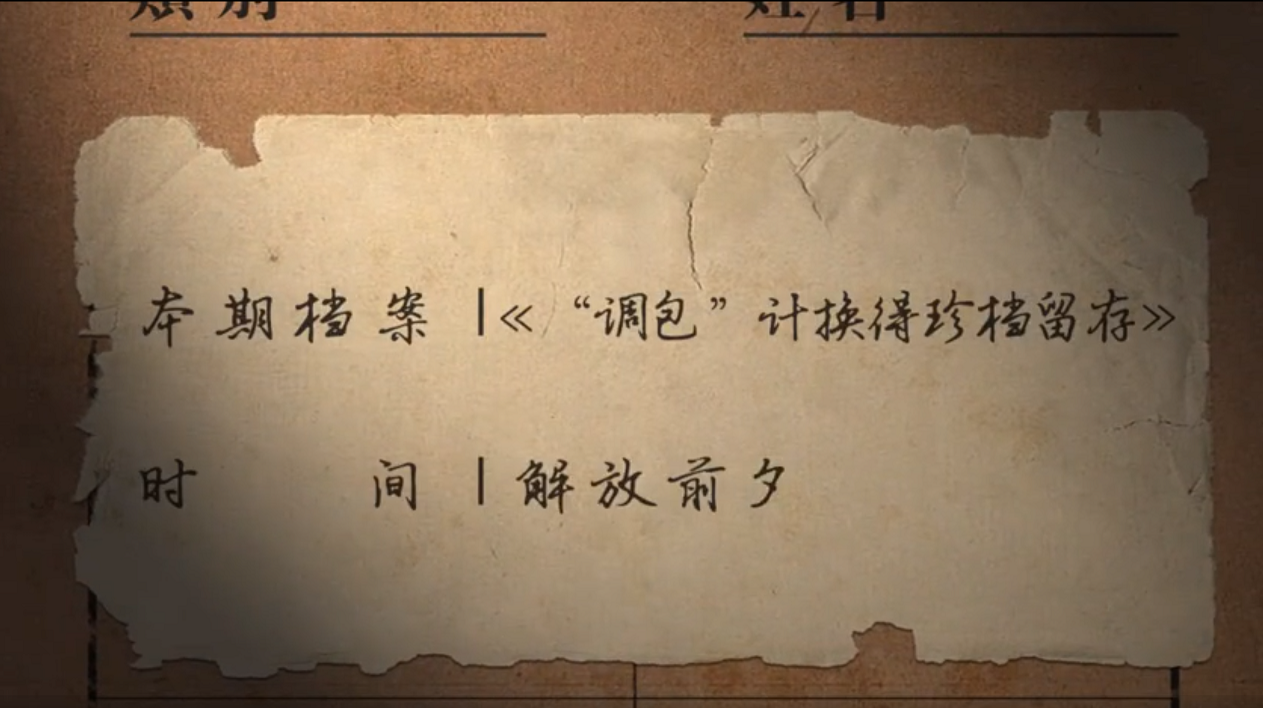 类别 姓名
本期档案 |《“调包”计换得珍档留存》
时间 | 解放前夕